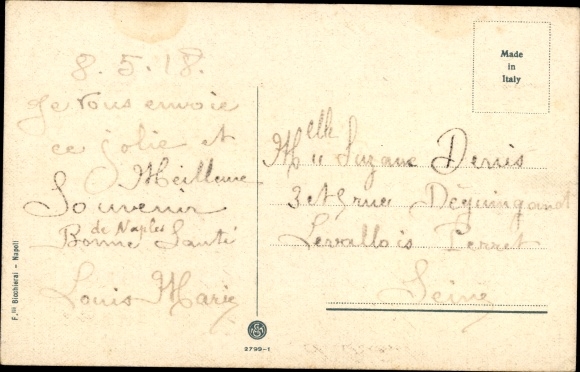 8.5.18.
Je vous envoie
ce jolie et
Meilleure
Souvenir
de Naples
Bonne Santé
Louis Marie
F.lli Bicchierai - Napoli
2799-1
Made
in
Italy
Melle Suzane Denis
3 et 5 rue Déguingand
Levallois Perret
Seine